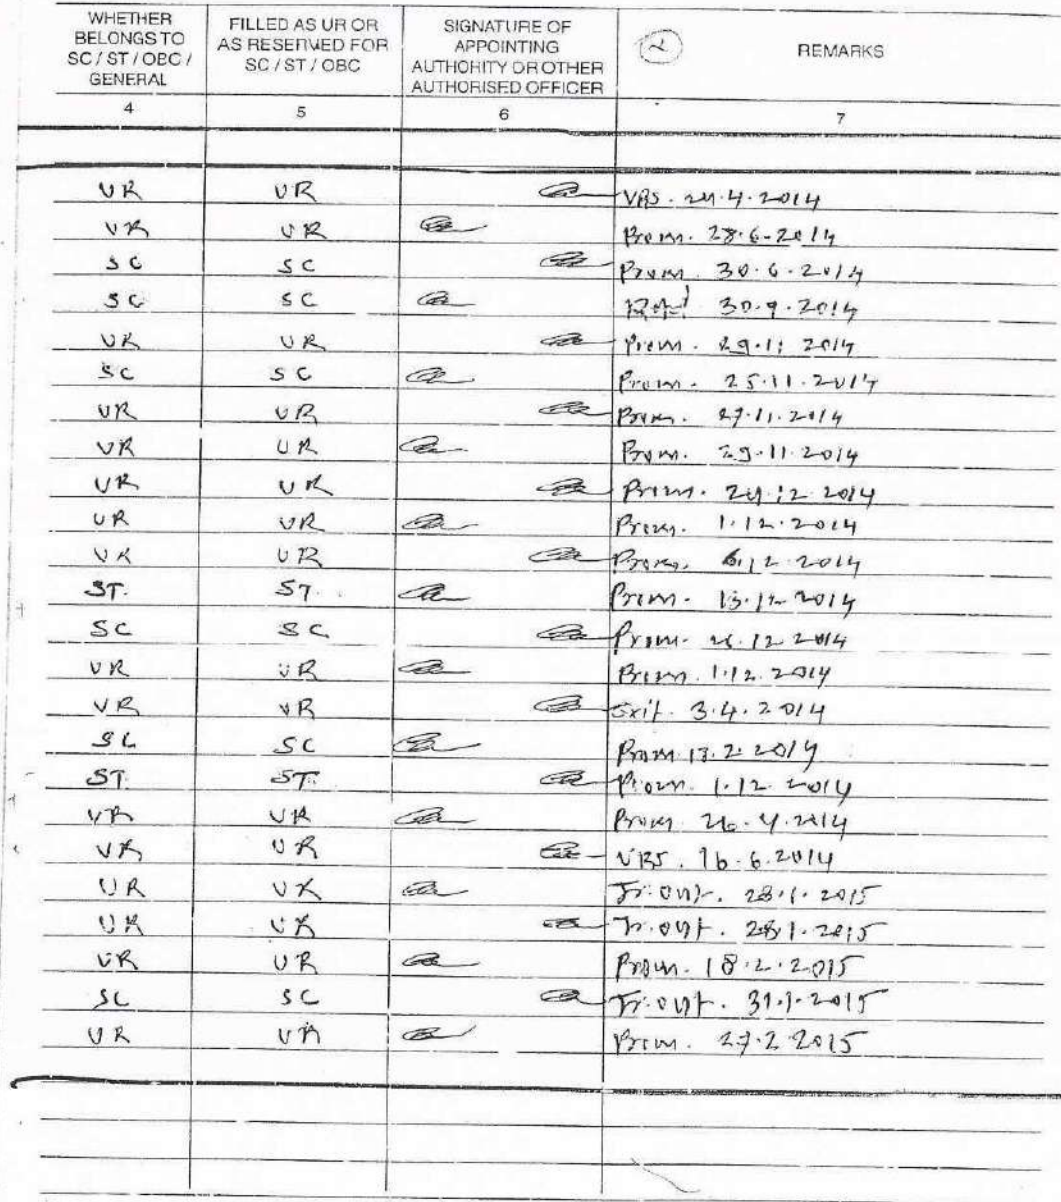 WHETHER BELONGS TO SC / ST / OBC / GENERAL | FILLED AS UR OR AS RESERVED FOR SC / ST / OBC | SIGNATURE OF APPOINTING AUTHORITY OR OTHER AUTHORISED OFFICER | REMARKS
4 5 6 7
UR UR VRS. 24.4.2014
UR UR Prom. 28.6.2014
SC SC Prom. 30.6.2014
SC SC 30.9.2014
UR UR Prom. 29.11 2014
SC SC Prom. 25.11.2014
UR UR Prom. 27.11.2014
UR UR Prom. 29.11.2014
UR UR Prom. 24.12.2014
UR UR Prom. 1.12.2014
UR UR Prom. 6.12.2014
ST. ST. Prom. 13.12.2014
SC SC Prom. 12.2014
UR UR Prom. 1.12.2014
UR UR Exit. 3.4.2014
SC SC Prom 2.2014
ST. ST. Prom. 1.12.2014
UR UR Prom 26.4.2014
UR UR VRS. 16.6.2014
UR UR Tr. out. 28.1.2015
UR UR Tr. out. 28.1.2015
UR UR Prom. 18.2.2015
SC SC Tr. out. 31.1.2015
UR UR Prom. 27.2.2015